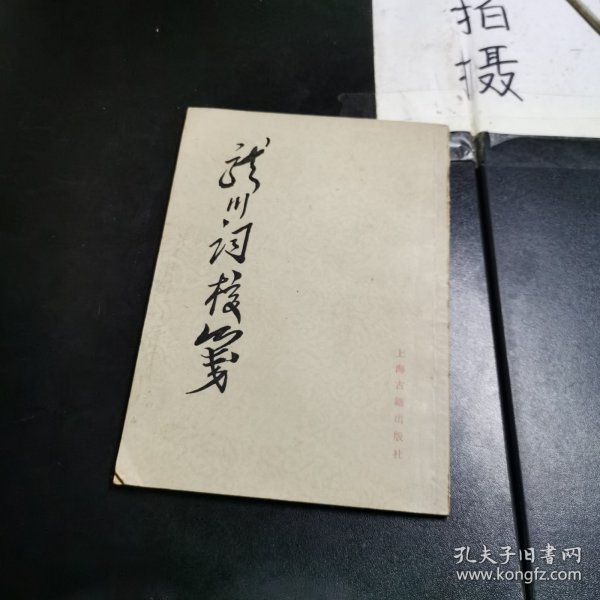 拍摄
龍川詞校箋
上海古籍出版社
孔夫子旧书网
www.kongfz.com